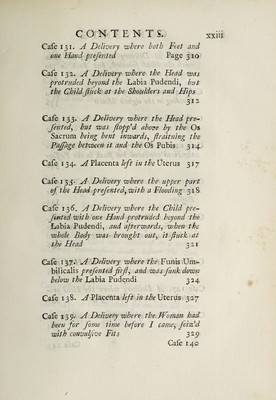 CONTENTS. xxiii
Caſe 131. A Delivery where both Feet and
one Hand preſented Page 310
Caſe 132. A Delivery where the Head was
protruded beyond the Labia Pudendi, but
the Child ſtuck at the Shoulders and Hips
312
Caſe 133. A Delivery where the Head pre-
ſented, but was ſtopp'd above by the Os
Sacrum being bent inwards, ſtraitning the
Paſſage between it and the Os Pubis 314
Caſe 134. A Placenta left in the Uterus 317
Caſe 135. A Delivery where the upper part
of the Head preſented, with a Flooding 318
Caſe 136. A Delivery where the Child pre-
ſented with one Hand protruded beyond the
Labia Pudendi, and afterwards, when the
whole Body was brought out, it ſtuck at
the Head 321
Caſe 137. A Delivery where the Funis Um-
bilicalis preſented firſt, and was ſunk down
below the Labia Pudendi 324
Caſe 138. A Placenta left in the Uterus 327
Caſe 139. A Delivery where the Woman had
been for ſome time before I came, ſeiz'd
with convulſive Fits 329
Caſe 140